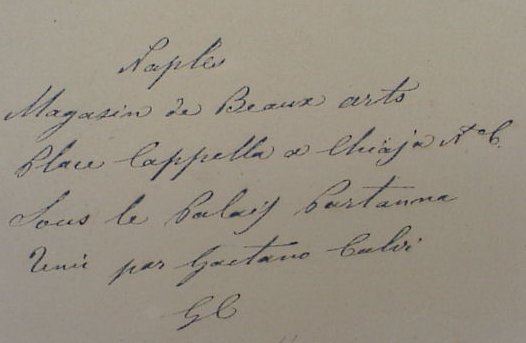 Naples
Magasin de Beaux arts
Place Cappella a Chiaja
Sous le Palais Partanna
Tenu par Gaetano Calvi
GC